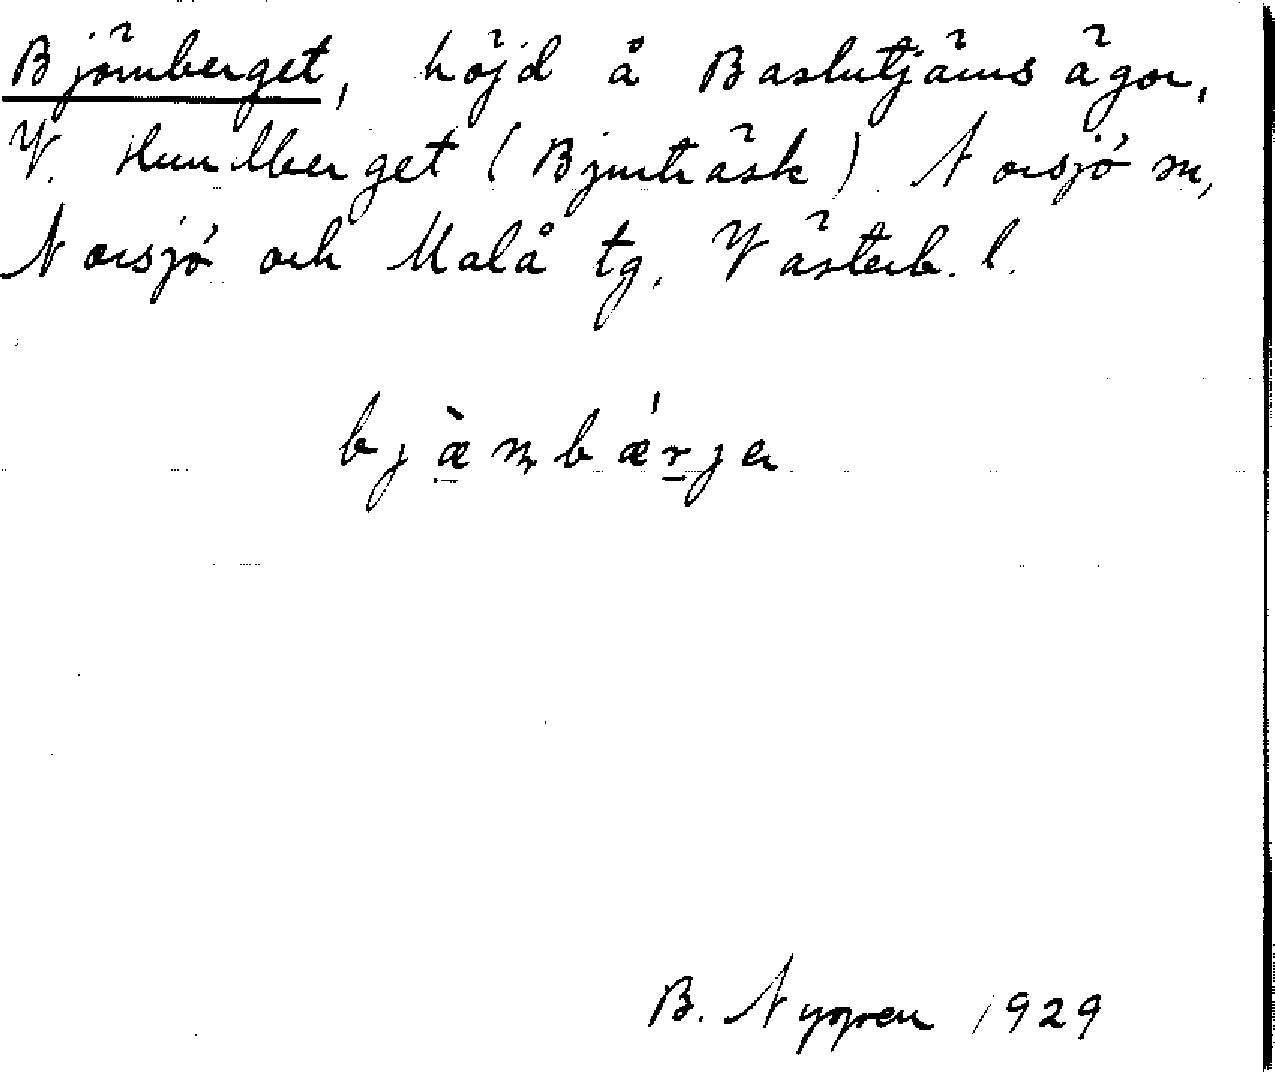 Björnberget, höjd å Baslutjärns ägor,
V. Hundberget (Bjurträsk) Norsjö sn,
Norsjö och Malå tg. Västerb. l.
bjæ̀ɳbǽrjə
B. Nygren 1929